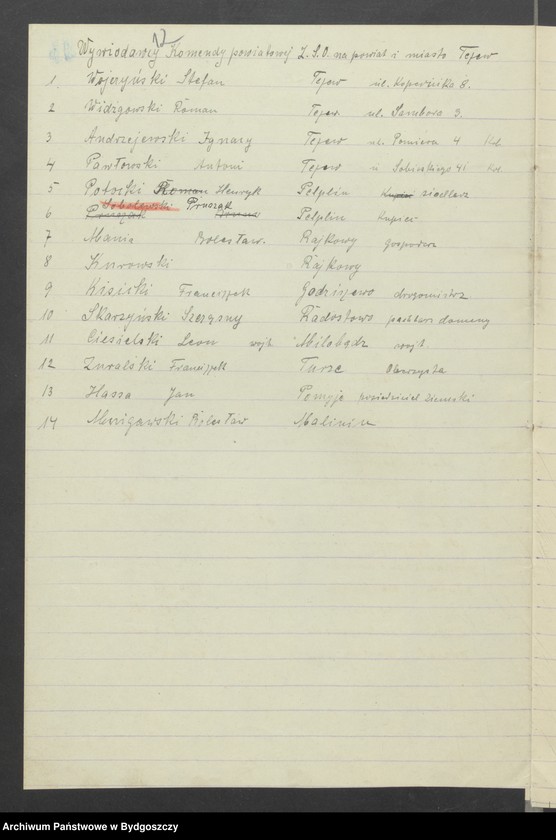 12
Wywiadowcy Komendy powiatowej Z.S.O. na powiat i miasto Tczew
1. Wojczyński Stefan Tczew ul. Kopernika 8.
2 Widzgowski Roman Tczew ul. Sambora 3.
3 Andrzejewski Ignacy Tczew ul. Ponviera 4
4 Pawłowski Antoni Tczew u Sobieskiego 41
5 Potocki Roman Henryk Pelplin Kupiec siodlarz
Sobolewski Pruszak
6 Pruszak Pelplin Kupiec
7 Mania Bolesław. Rajkowy gospodarz
8 Kurowski Rajkowy
9 Kisicki Franciszek Godziszewo drogomistrz
10 Skarzyński Szczęsny Radostowo dzierż domeny
11 Ciesielski Leon wójt Miłobądz wójt
12 Zuralski Franciszek Turze Oberzysta
13 Hassa Jan Pomyje posiedziciel ziemski
14 Bolesław Malinin
Archiwum Państwowe w Bydgoszczy